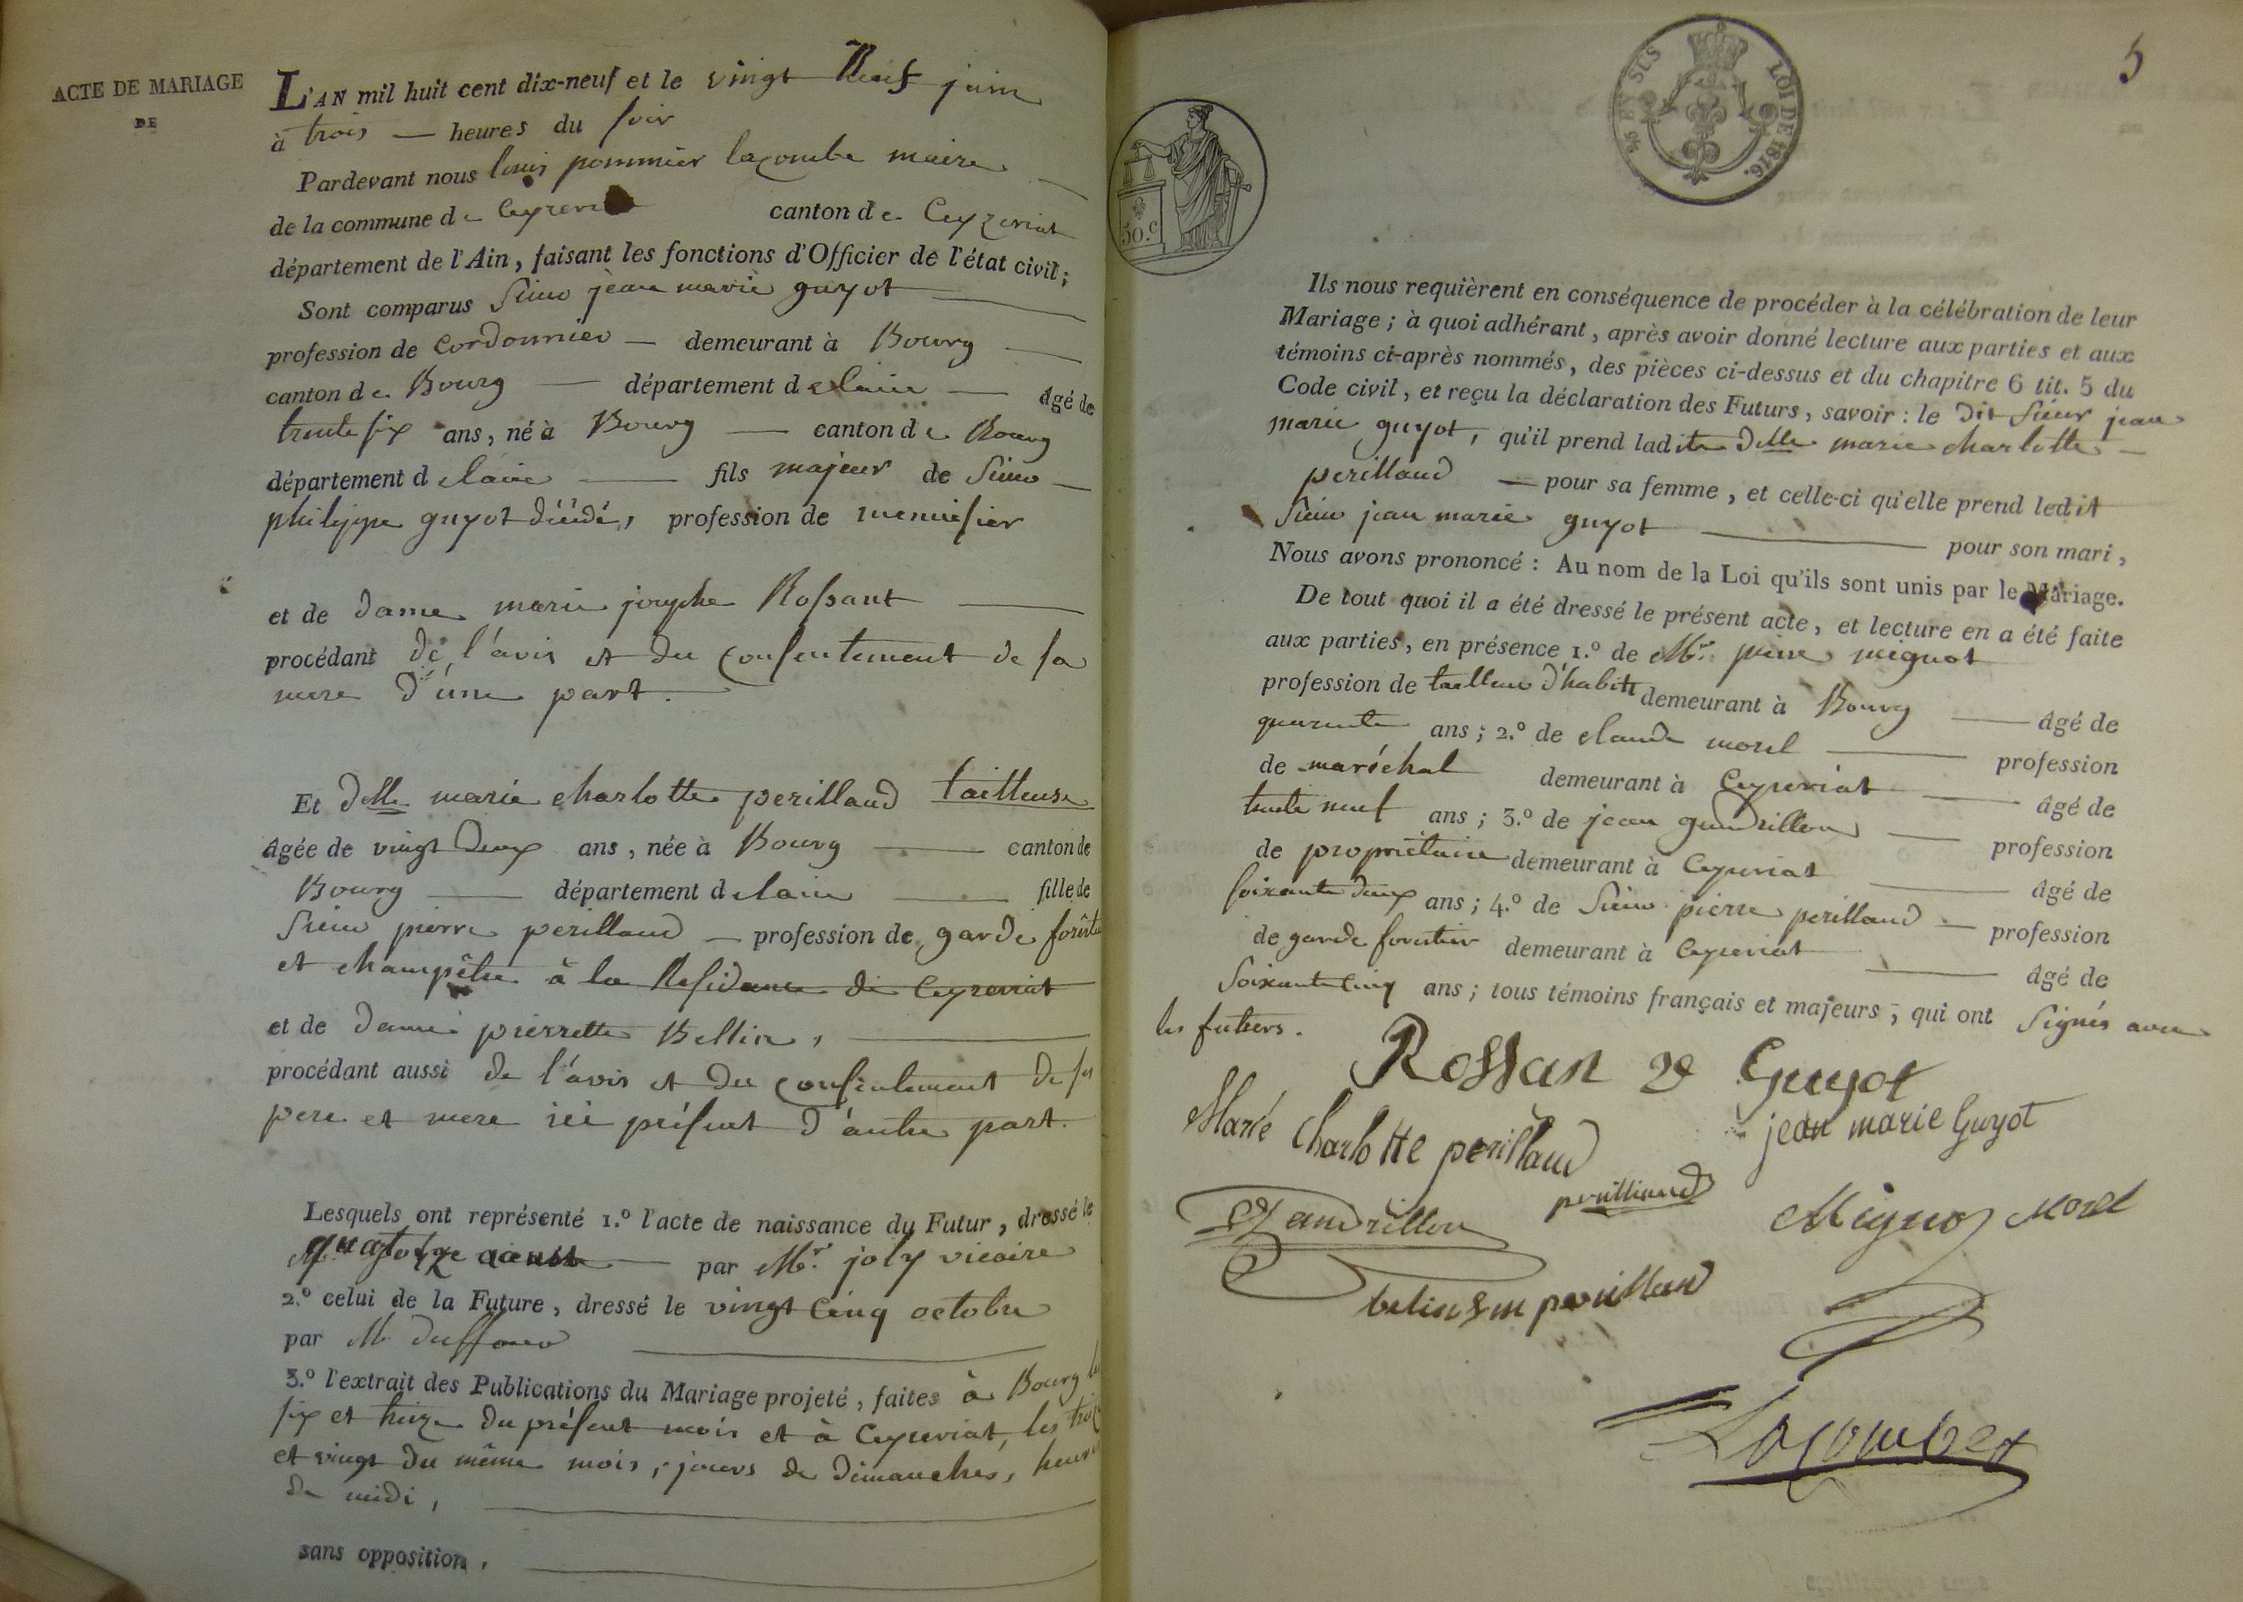 ACTE DE MARIAGE
DE
L'AN mil huit cent dix-neuf et le vingt Neuf juin
à trois — heures du soir
Pardevant nous louis pommier lacombe maire —
de la commune de Ceyzeriat canton de Ceyzeriat
département de l'Ain, faisant les fonctions d'Officier de l'état civil;
Sont comparus Sieur jean marie guyot —
profession de Cordonnier — demeurant à Bourg —
canton de Bourg — département de lain — âgé de
trente six ans, né à Bourg — canton de Bourg
département de lain — fils majeur de Sieur —
philippe guyot décédé, profession de menuisier
et de dame marie josephe Rossant —
procédant de l'avis et du consentement de sa
mere d'une part.
Et delle marie charlotte perillaud tailleuse
âgée de vingt deux ans, née à Bourg — canton de
Bourg — département de lain — fille de
Sieur pierre perillaud — profession de garde forêtie
et champêtre à la Residance de Ceyzeriat
et de dame pierrette Bellin, —
procédant aussi de l'avis et du consentement de ses
pere et mere ici présent d'autre part.
Lesquels ont représenté 1.º l'acte de naissance du Futur, dressé le
quatorze aoust — par Mr. joly vicaire
2.º celui de la Future, dressé le vingt Cinq octobre
par M duffour —
3.º l'extrait des Publications du Mariage projeté, faites à Bourg les
six et treize du présent mois et à Ceyzeriat, les treize
et vingt du même mois, jours de dimanches, heure
de midi, —
sans opposition, —
5
LOI DE 1816.
50.c
Ils nous requièrent en conséquence de procéder à la célébration de leur
Mariage; à quoi adhérant, après avoir donné lecture aux parties et aux
témoins ci-après nommés, des pièces ci-dessus et du chapitre 6 tit. 5 du
Code civil, et reçu la déclaration des Futurs, savoir: le dit Sieur jean
marie guyot, qu'il prend ladite delle marie charlotte —
perillaud — pour sa femme, et celle-ci qu'elle prend ledit
Sieur jean marie guyot — pour son mari,
Nous avons prononcé: Au nom de la Loi qu'ils sont unis par le Mariage.
De tout quoi il a été dressé le présent acte, et lecture en a été faite
aux parties, en présence 1.º de Mr. pierre mignot
profession de tailleur d'habits demeurant à Bourg — âgé de
quarente ans; 2.º de claude morel — profession
de maréchal demeurant à Ceyzeriat — âgé de
trente neuf ans; 3.º de jean gandrillon — profession
de propriétaire demeurant à Ceyzeriat — âgé de
soixante deux ans; 4.º de Sieur pierre perillaud — profession
de garde forestier demeurant à Ceyzeriat — âgé de
Soixante Cinq ans; tous témoins français et majeurs; qui ont Signés avec
les futurs.
Rossan ve Guyot
Marié Charlotte perillaud jean marie Guyot
perilliaud
Gandrillon Mignot Morel
belin fm perillaud
Lacombe